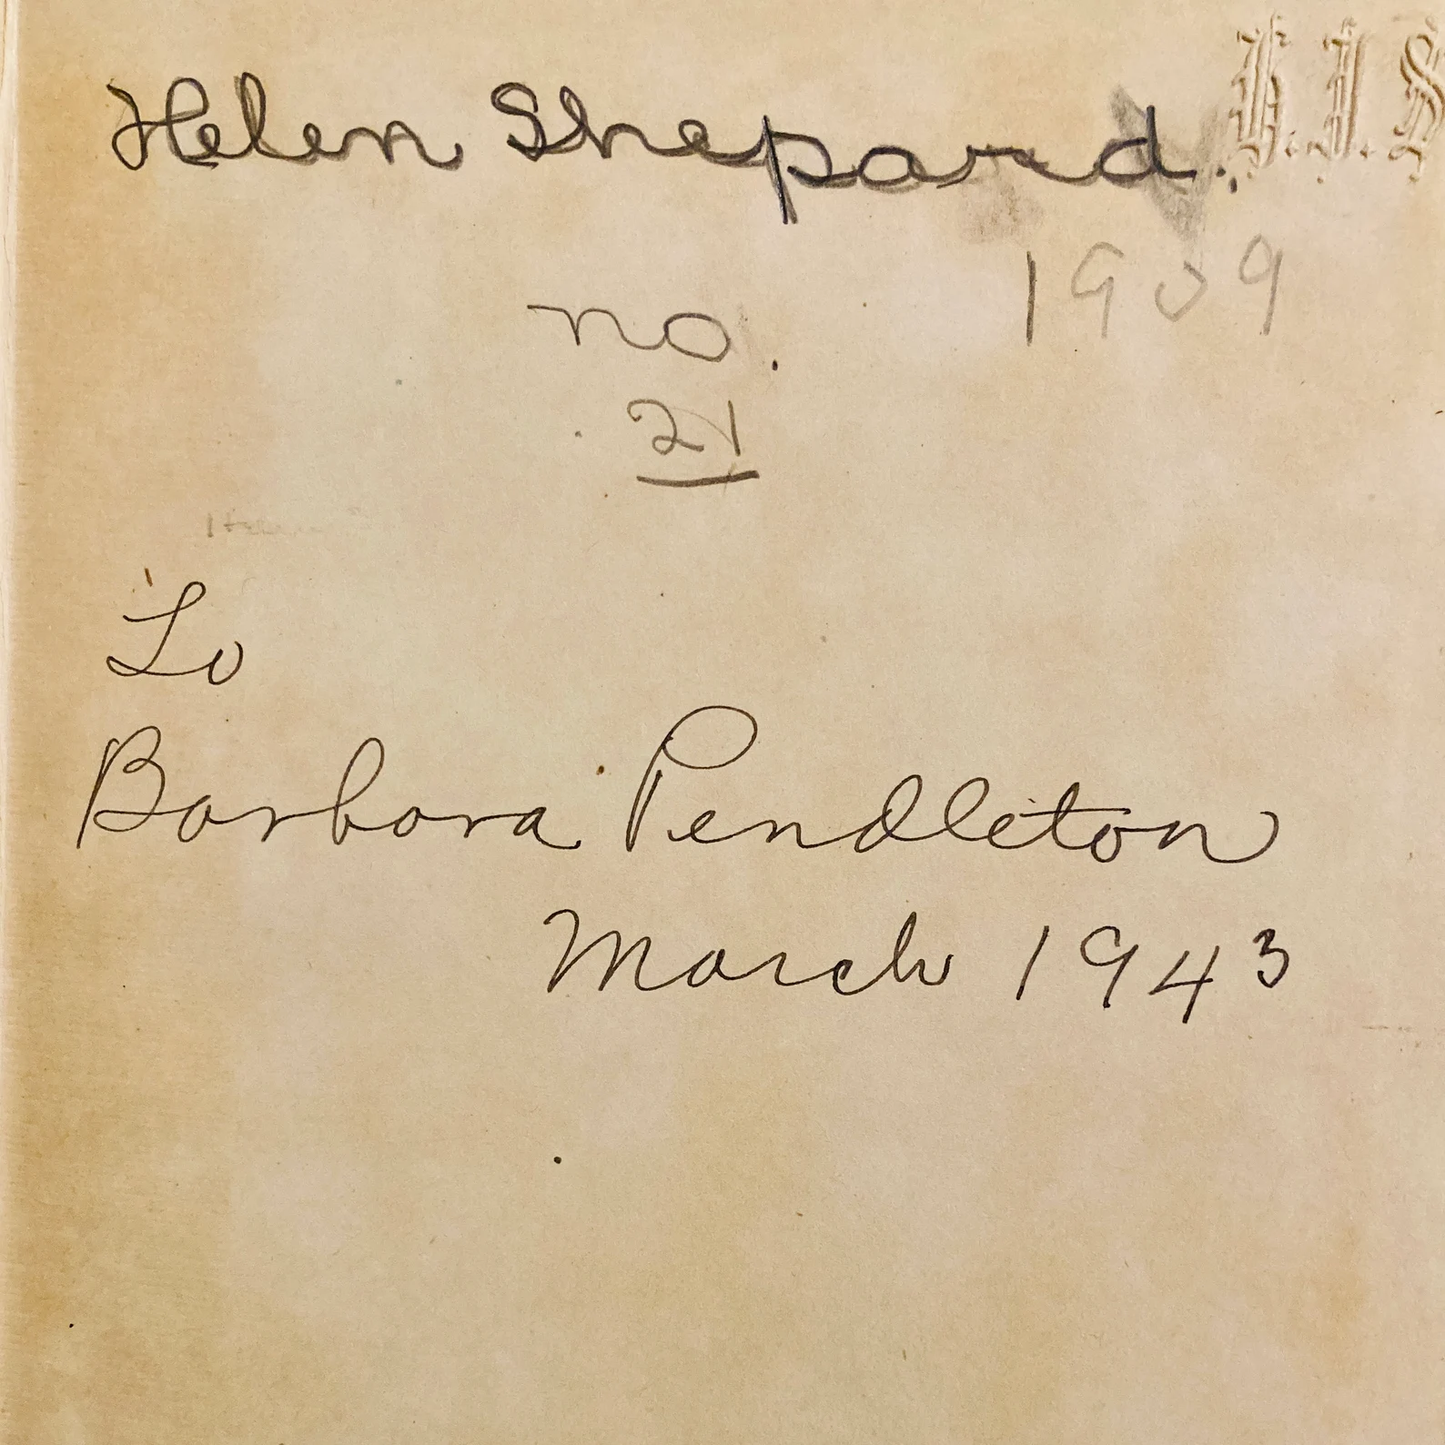 Helen Shepard.
1909
no.
21
To
Barbara Pendleton
March 1943